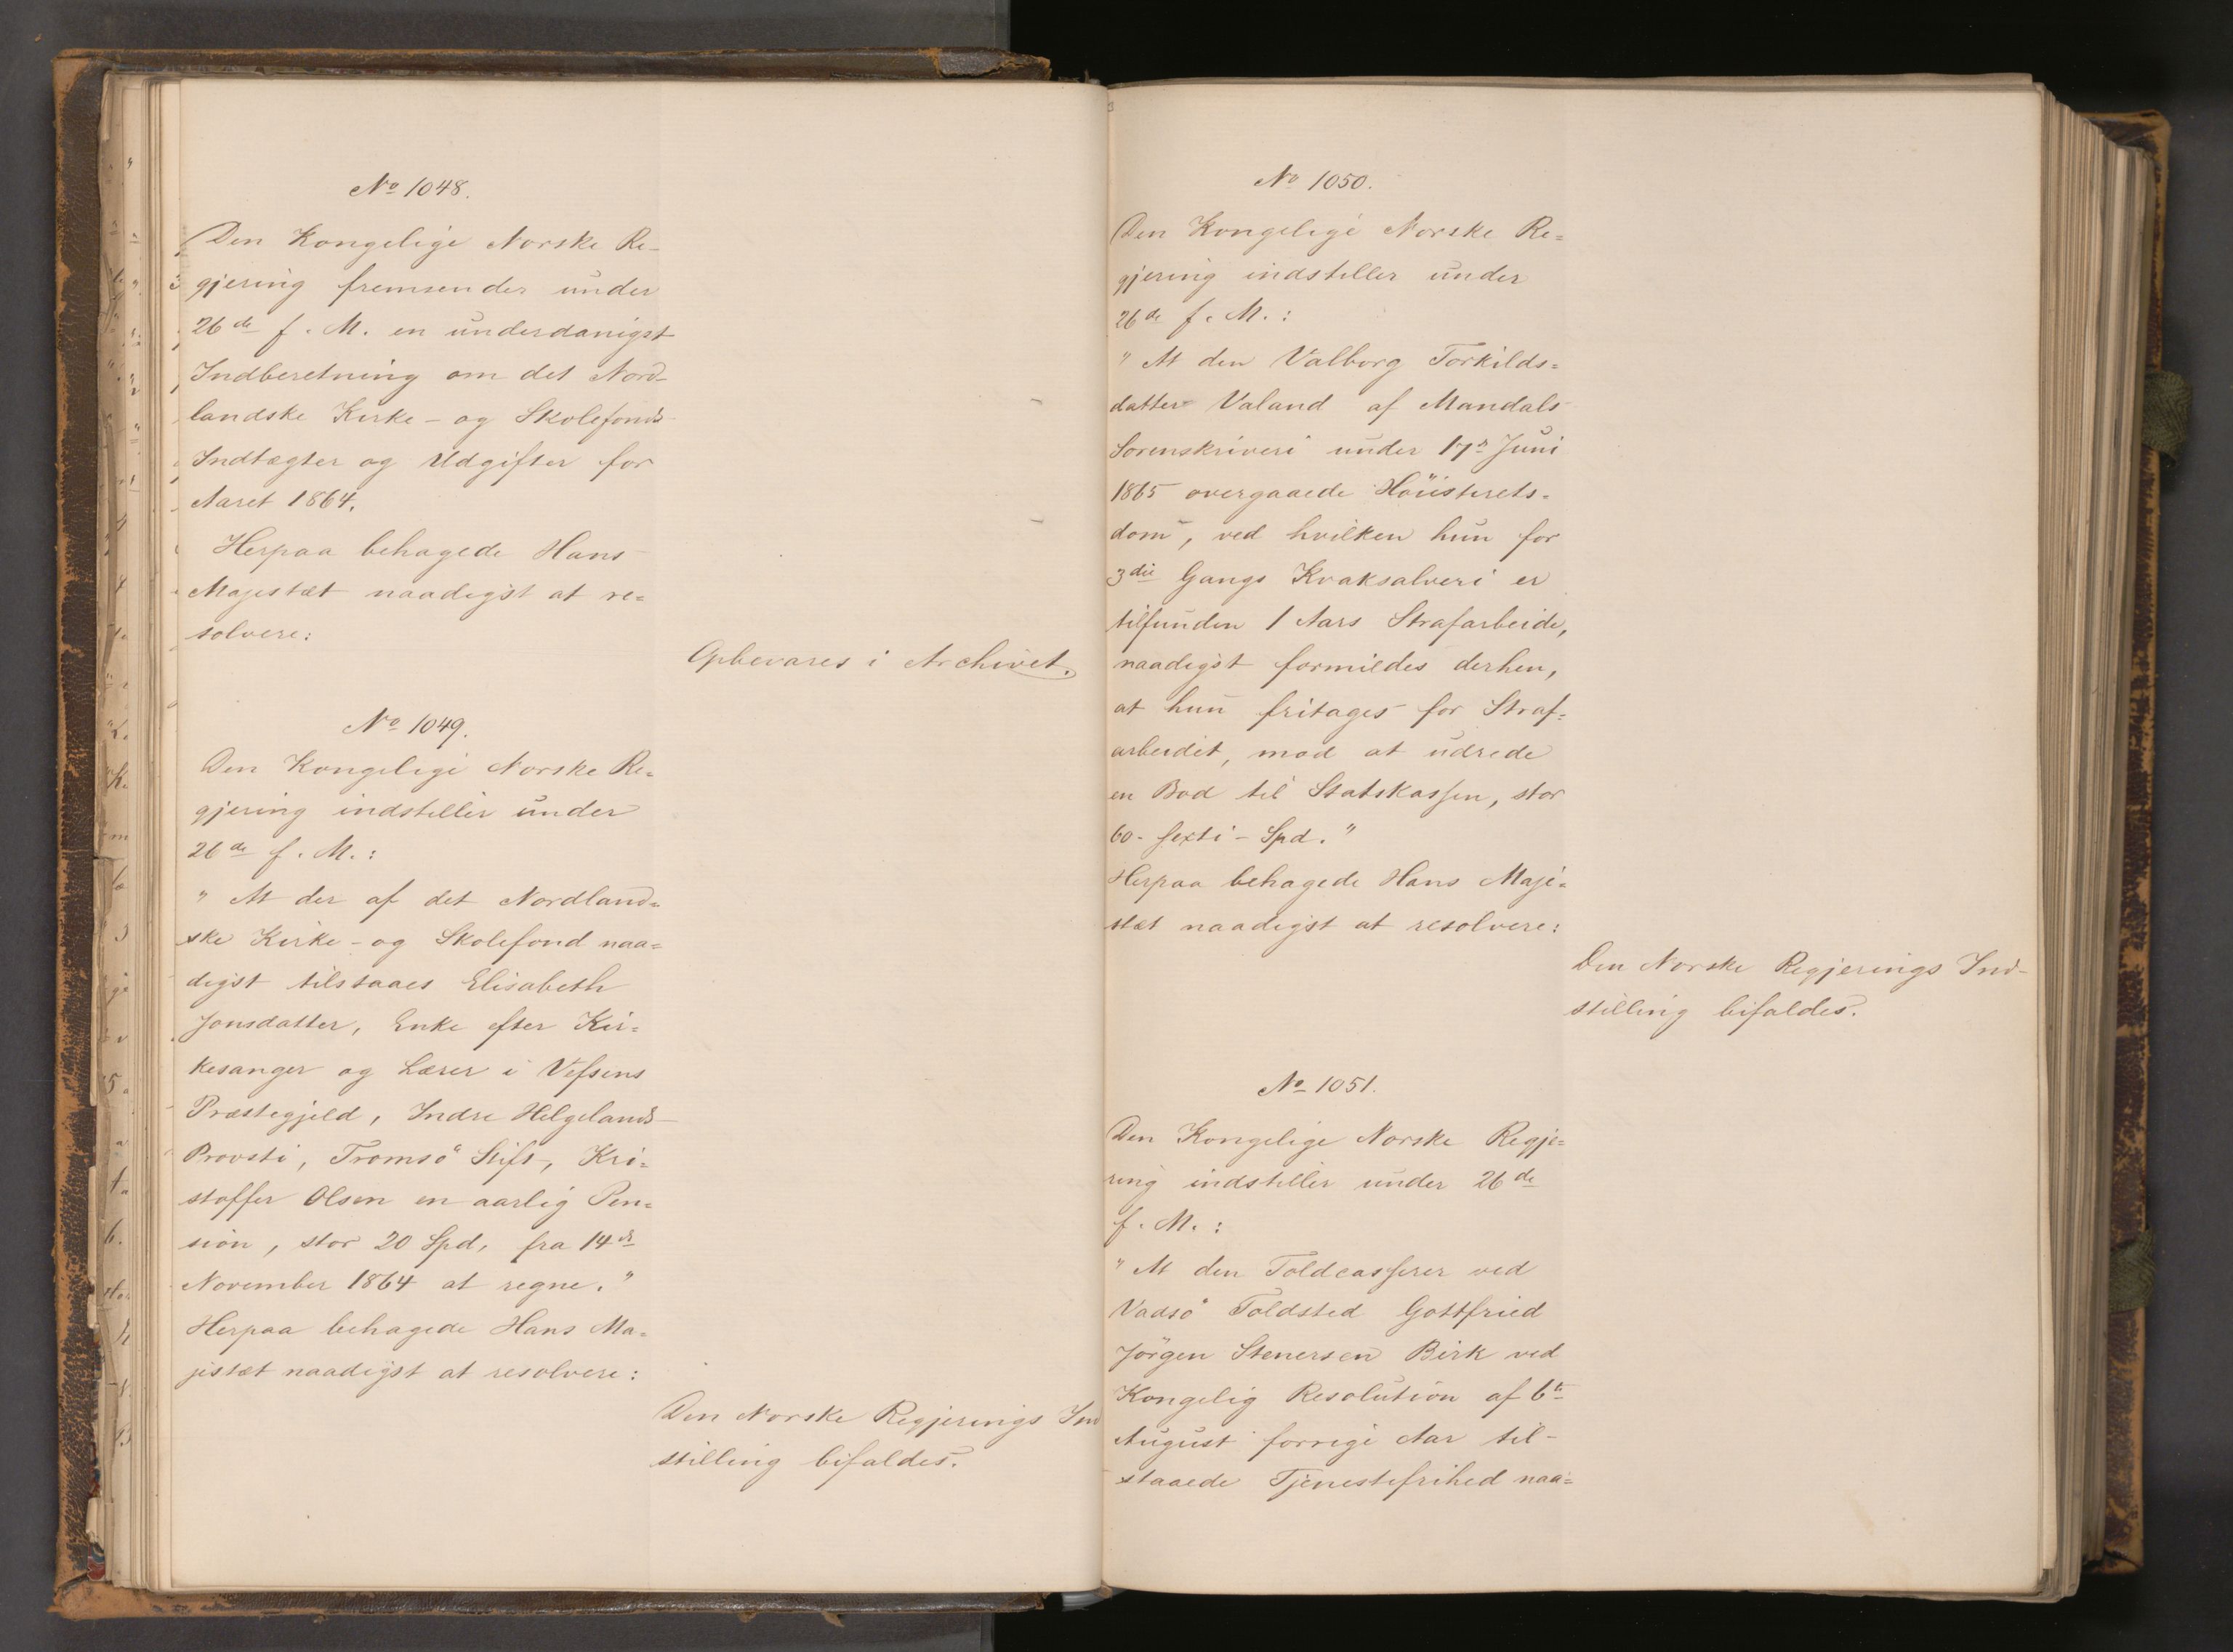 No 1048.
Den Kongelige Norske Re-
gjering fremsender under
26de f. M. en underdanigst
Indberetning om det Nord-
landske Kirke- og Skolefonds
Indtægter og Udgifter for
Aaret 1864.
Herpaa behagede Hans
Majestæt naadigst at re=
solvere:
Opbevares i Archivet.
No 1049.
Den Kongelige Norske Re=
gjering indstiller under
26de f. M.:
"At der af det Nordland=
ske Kirke- og Skolefond naa=
digst tilstaaes Elisabeth
Jonsdatter, Enke efter Kir=
kesanger og Lærer i Vefsens
Præstegjeld, Indre Helgelands
Provsti, Tromsö Stift, Kri=
stoffer Olsen en aarlig Pen=
sion, stor 20 Spd, fra 14de
November 1864 at regne."
Herpaa behagede Hans Ma=
jestæt naadigst at resolvere:
Den Norske Regjerings Ind
stilling bifaldes.
No 1050.
Den Kongelige Norske Re=
gjering indstiller under
26de f. M.:
"At den Valborg Torkilds=
datter Valand af Mandals
Sorenskriveri under 17de Juni
1865 overgaaede Höiesterets=
dom, ved hvilken hun for
3die Gangs Kvaksalveri er
tilfunden 1 Aars Strafarbeide,
naadigst formildes derhen,
at hun fritages for Straf=
arbeidet, mod at udrede
en Bod til Statskassen, stor
60- sexti- Spd."
Herpaa behagede Hans Maje=
stæt naadigst at resolvere:
Den Norske Regjerings Ind-
stilling bifaldes.
No 1051.
Den Kongelige Norske Regje=
ring indstiller under 26de
f. M.:
"At den Toldcasserer ved
Vadsö Toldsted Gottfried
Jörgen Stenersen Birk ved
Kongelig Resolution af 6te
August forrige Aar til-
staaede Tjenestefrihed naa=